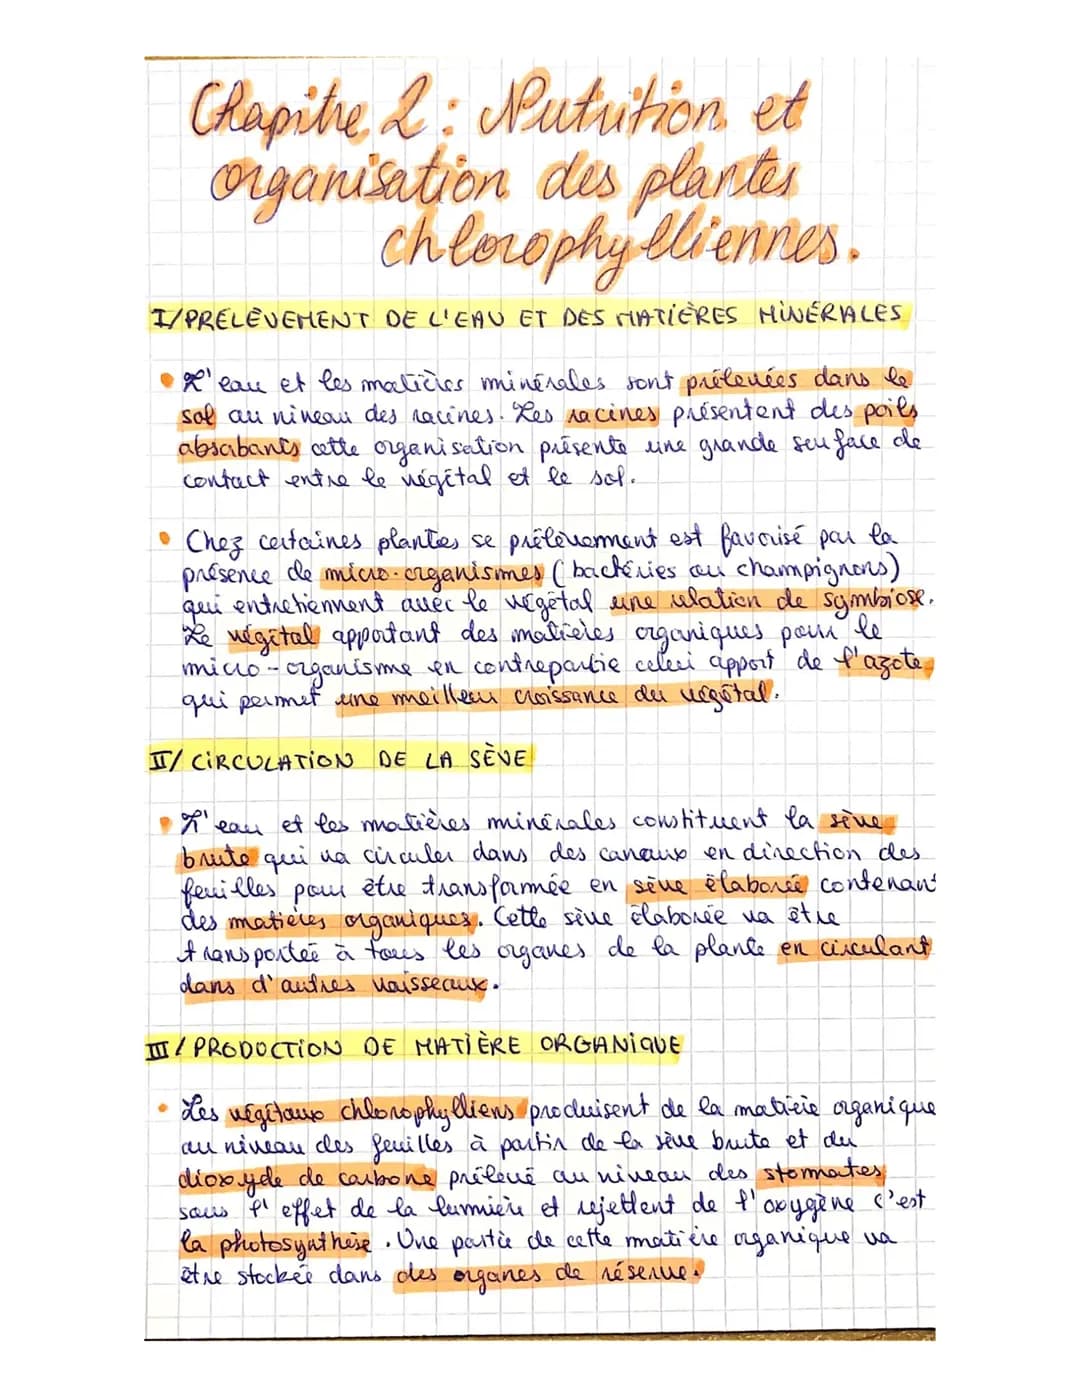 Chapitre 2 : Nutrition et
organisation des plantes
chlorophylliennes.
I/ PRELÈVEMENT DE L'EAU ET DES MATIÈRES MINÉRALES
• L'eau et les matières minérales sont prélevées dans le
sol au niveau des racines. Les racines présentent des poils
absabants cette organisation présente une grande surface de
contact entre le végétal et le sol.
• Chez certaines plantes se prélèvemment est favorisé par la
présence de micro-organismes (bactéries ou champignons)
qui entretiennent avec le végétal une relation de symbiose.
Le végétal apportant des matières organiques pour le
micro-organisme en contrepartie celui apport de l'azote
qui permet une meilleur croissance du végétal.
II/ CIRCULATION DE LA SÈVE
• L'eau et les matières minérales constituent la sève
brute qui va circuler dans des canaux en direction des
feuilles pour être transformée en sève élaborée contenant
des matières organiques. Cette sève élaborée va être
transportée à tous les organes de la plante en circulant
dans d'autres vaisseaux.
III/ PRODUCTION DE MATIÈRE ORGANIQUE
• Les végétaux chlorophylliens produisent de la matière organique
au niveau des feuilles à partir de la sève brute et du
dioxyde de carbone prélevé au niveau des stomates
sous l'effet de la lumière et rejettent de l'oxygène c'est
la photosynthèse. Une partie de cette matière organique va
être stockée dans des organes de réserve.